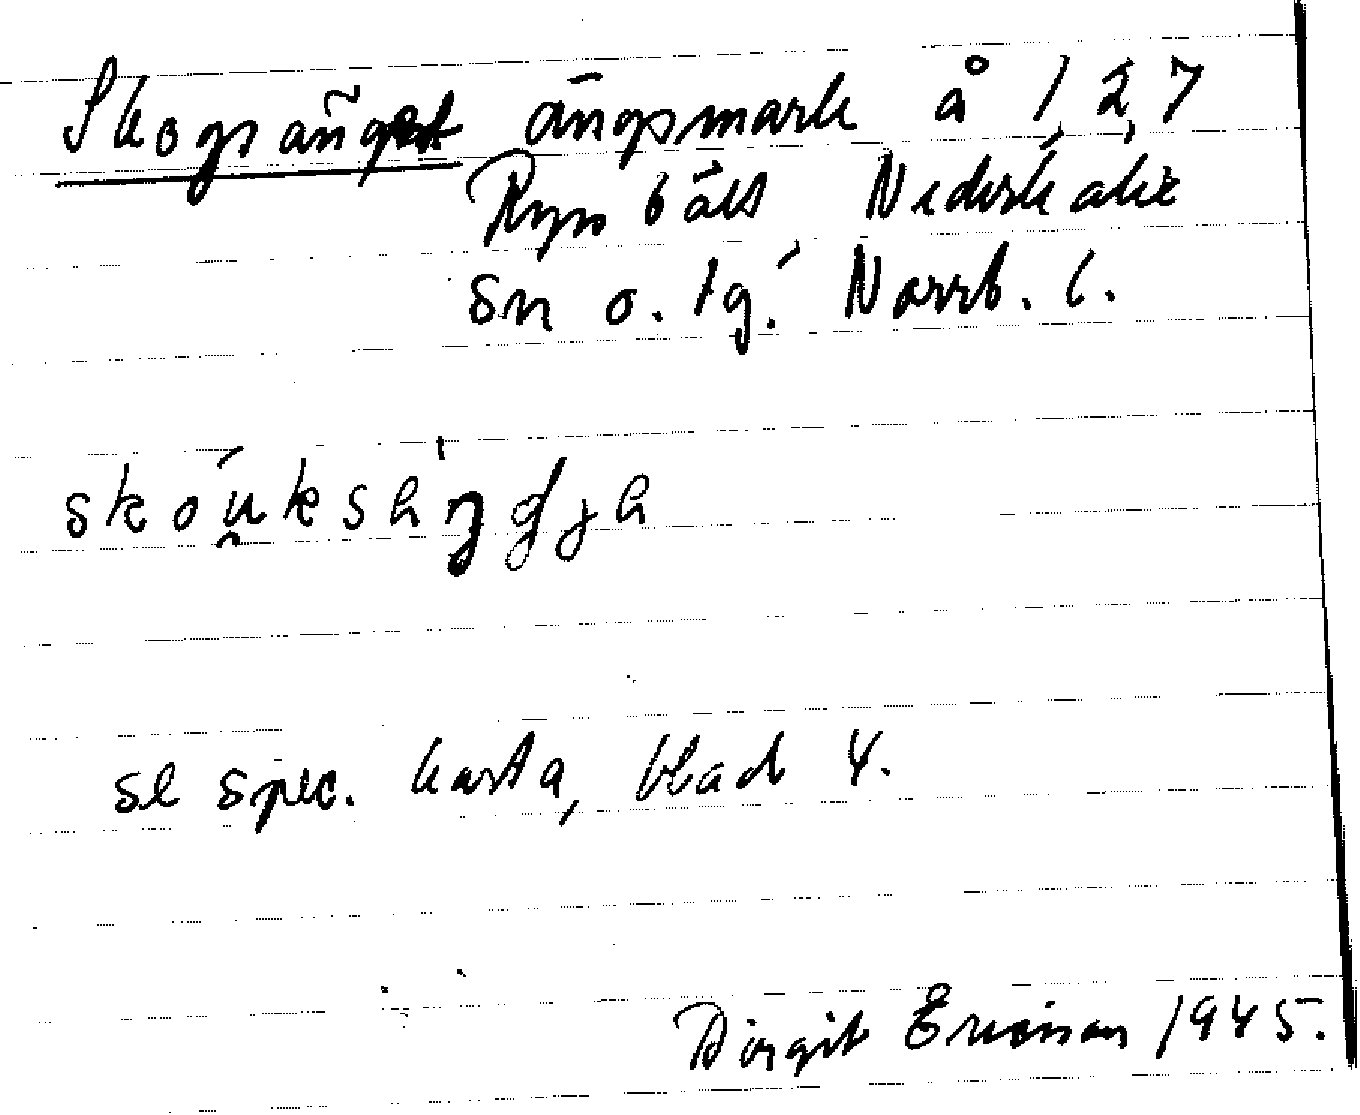 Skogsänget ängsmark å 1, 2, 7
Rysbält Nederkalix
sn o. tg. Norrb. l.
se spec. karta, blad 4.
Birgit Ericson 1945.